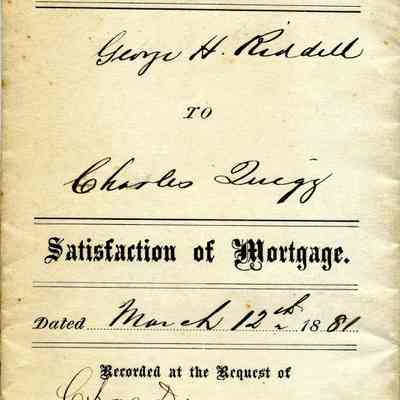 George H. Riddell
TO
Charles Quigg
Satisfaction of Mortgage.
Dated March 12th 1881
Recorded at the Request of
Chas